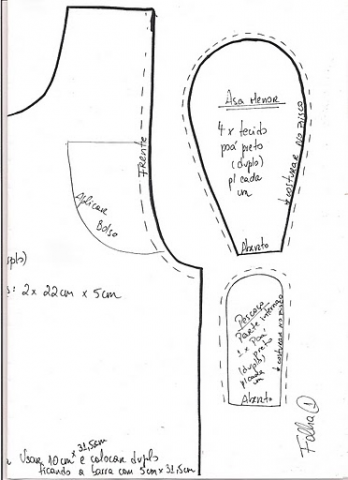 Asa Menor
4 x tecido
poá preto
(duplo)
p/ cada
um
* costurar no risco
Aberto
Frente
Aplicar
Bolso
uplo)
s: 2x 22cm x 5cm
Pescoço
Parte interna
2 x Poá
preto
(duplo)
p/ cada
um
* costurar no risco
Aberto
Usar 10cm x 31,5cm e colocar duplo
ficando a barra com 5cm x 31,5cm
Folha 1